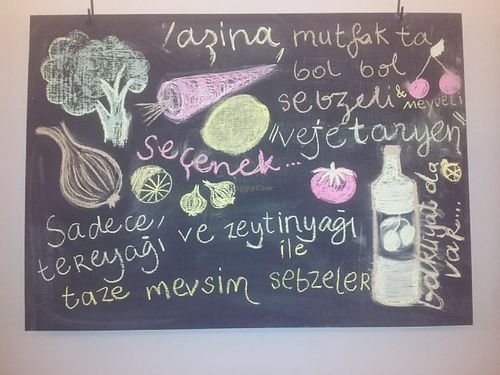 Yaşina, mutfakta
bol bol
sebzeli & meyveli
"vejetaryen"
seçenek...
Sadece,
tereyağı ve zeytinyağı
ile
taze mevsim sebzeler
bakliyat da
var...
HappyCow